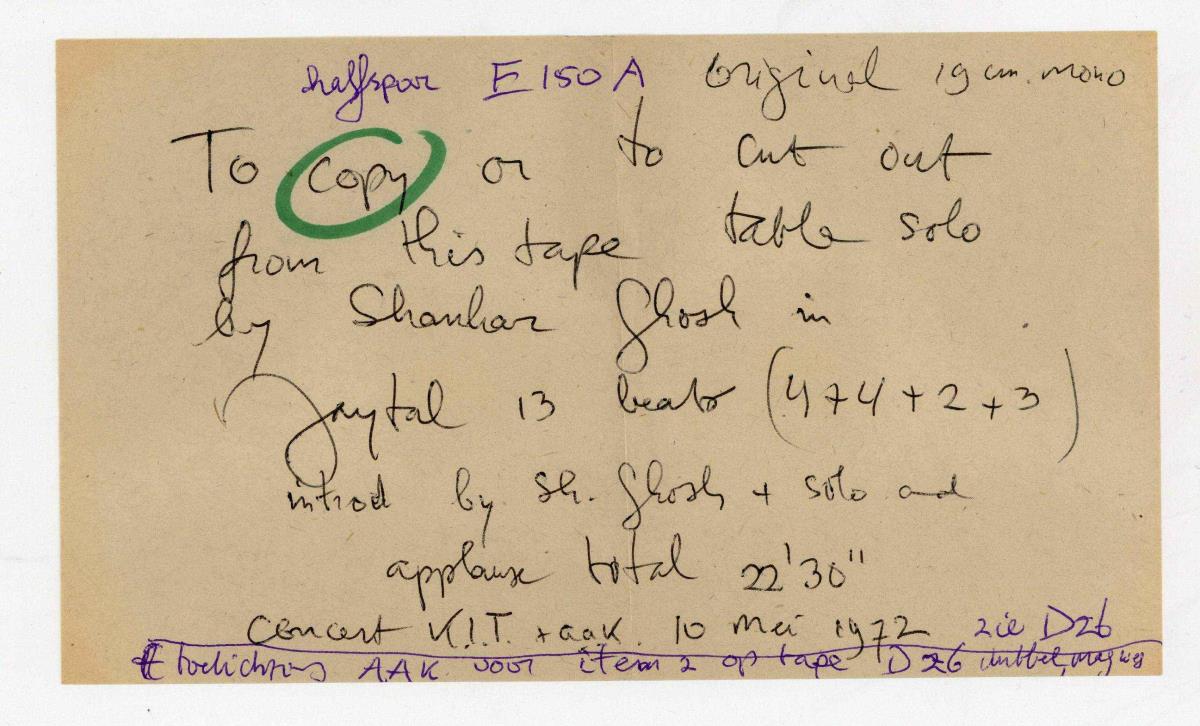 halfspoor E150A Original 19 cm. mono
To copy or to cut out
from this tape tabla solo
by Shankar Ghosh in
Jaytal 13 beats (4+4+2+3)
introd by Sh. Ghosh + solo and
applause total 22'30"
Concert K.I.T. + aak. 10 mei 1972 zie D26
toelichting AAK voor item 2 op tape D26 dubbel, mag weg